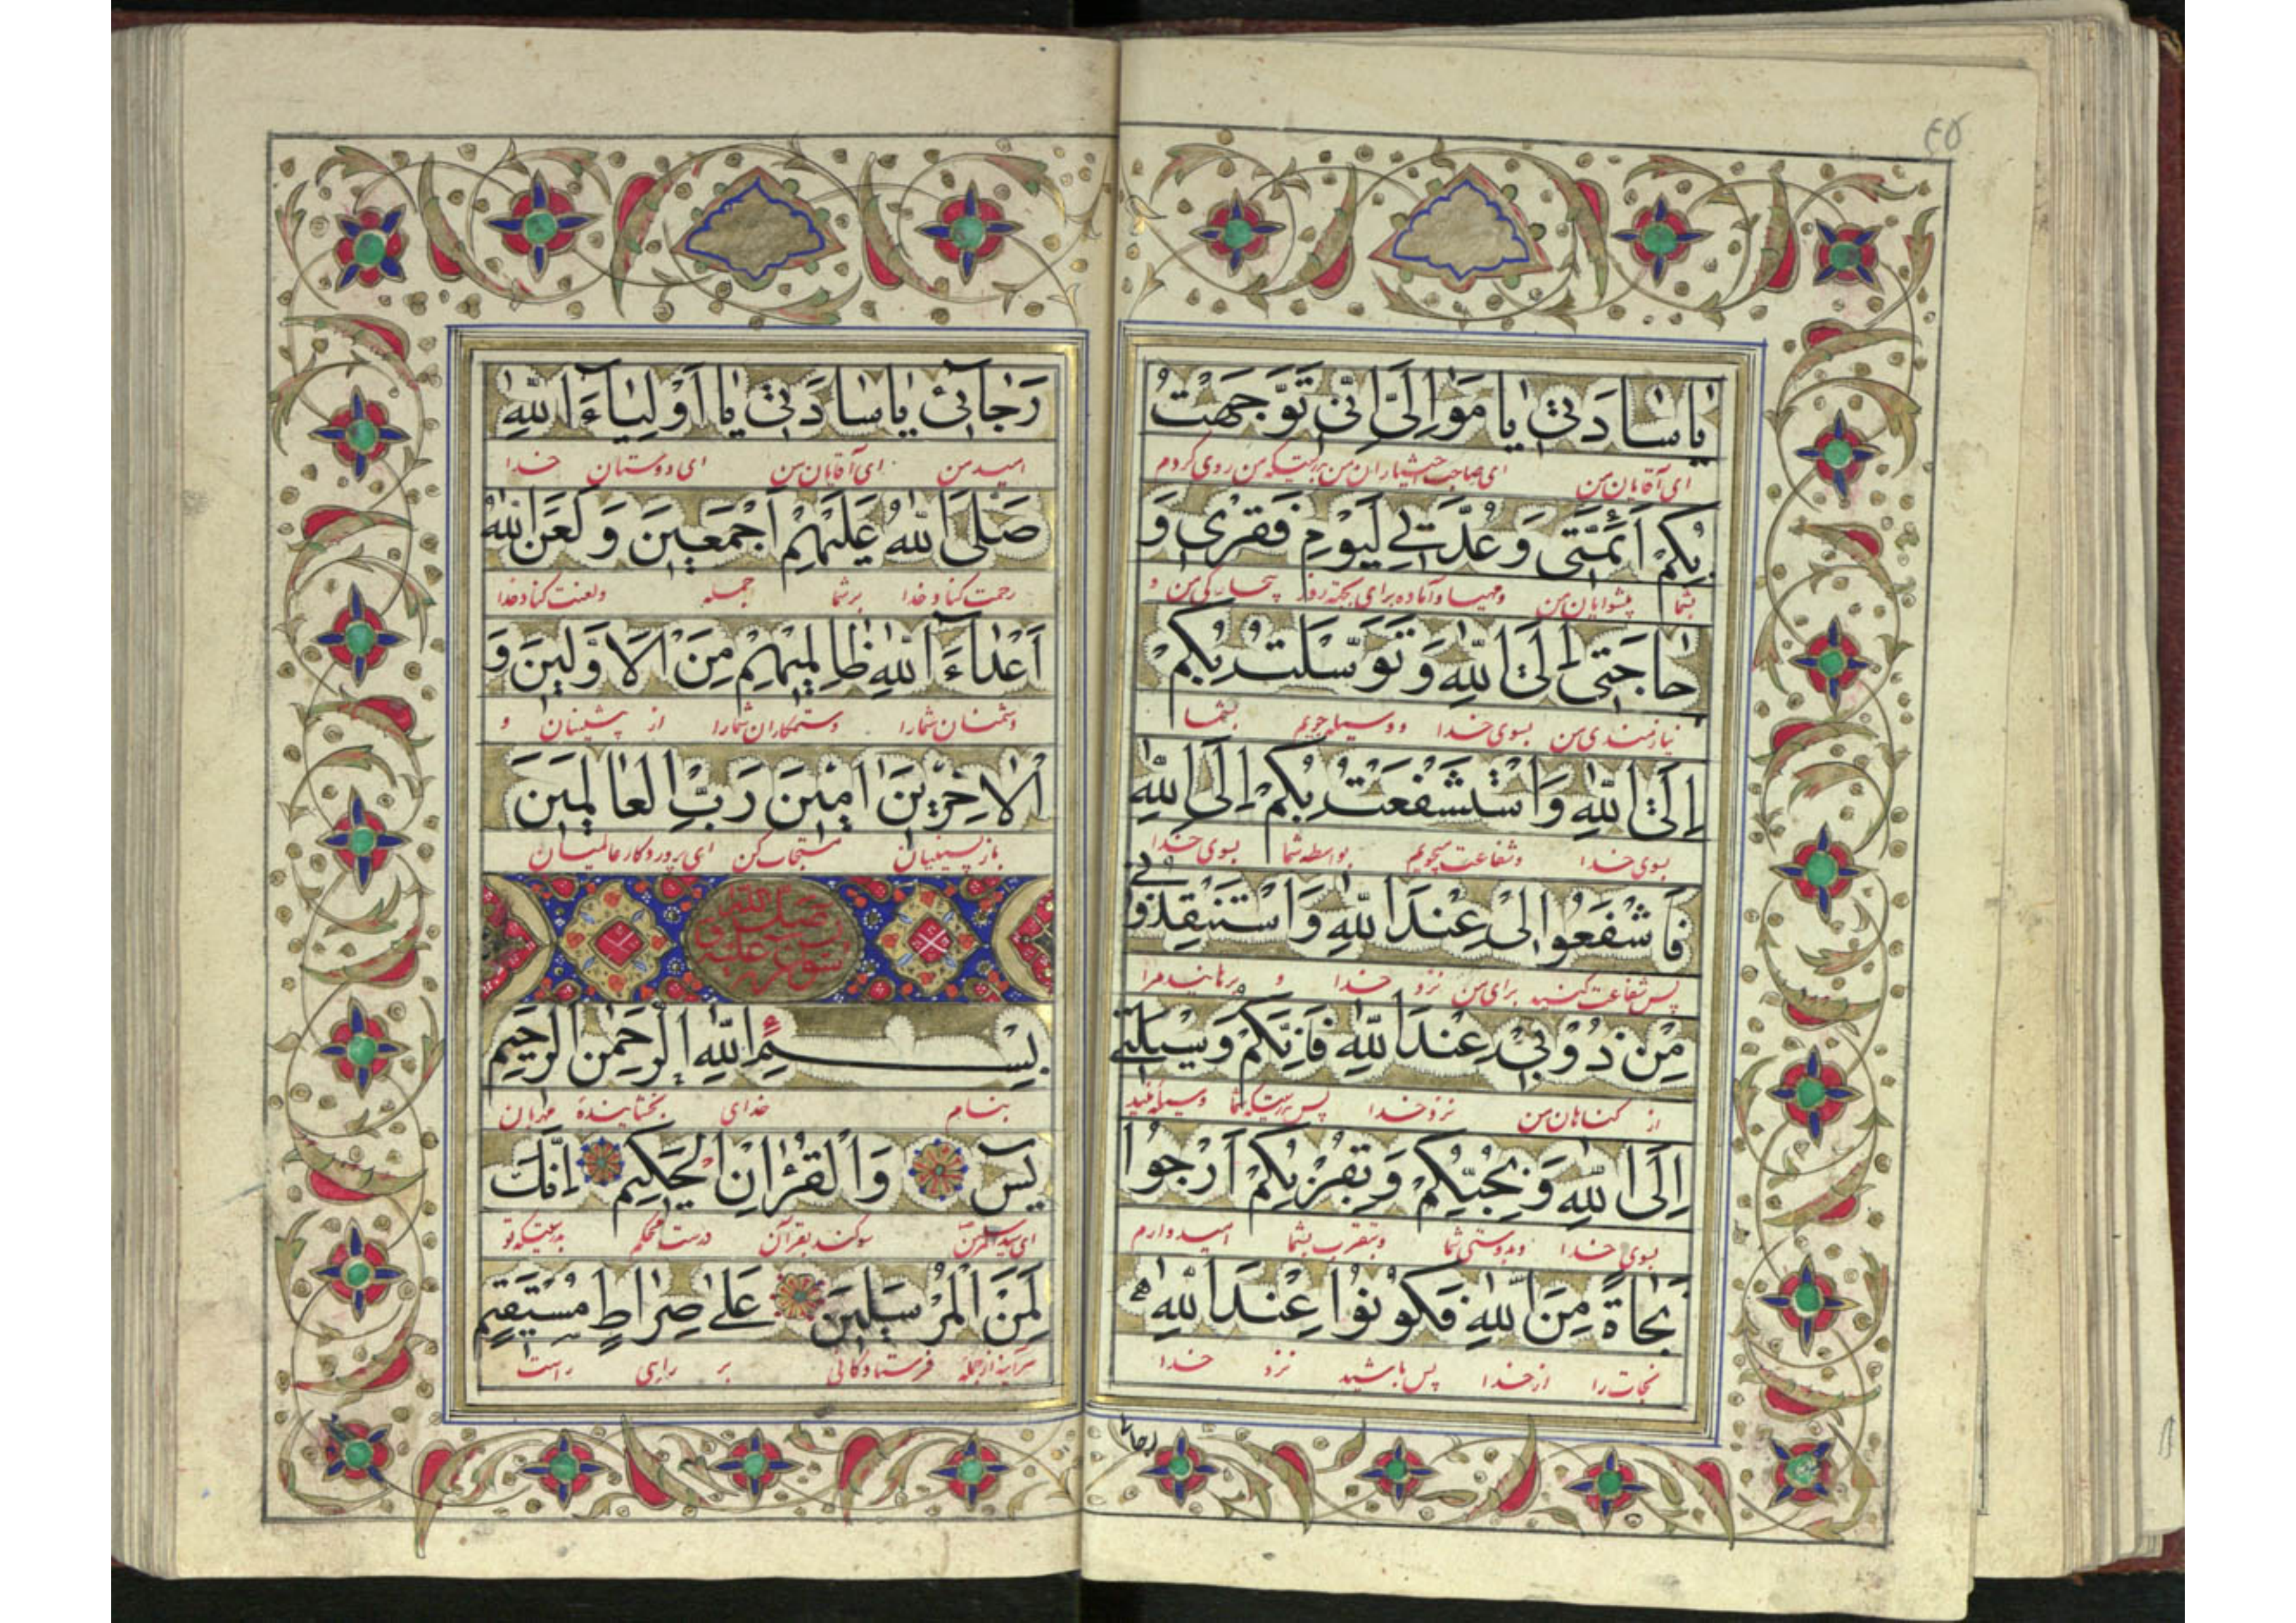 ٤٥
يَا سَادَتِي يَا مَوَالِيَّ اِنِّي تَوَجَّهْتُ
ای آقایان من ای صاحب اختیاران من بدرستیکه من روی کردم
بِكُمْ اَئِمَّتِي وَعُدَّتِي لِيَوْمِ فَقْرِي وَ
بشما پیشوایان من ومهیا وآماده برای بجهة روز بیچارگی من و
حَاجَتِي اِلَى اللهِ وَتَوَسَّلْتُ بِكُمْ
نیازمندی من بسوی خدا ووسیله جویم بشما
اِلَى اللهِ وَاسْتَشْفَعْتُ بِكُمْ اِلَى اللهِ
بسوی خدا وشفاعت میجویم بواسطه شما بسوی خدا
فَاشْفَعُوا لِي عِنْدَ اللهِ وَاسْتَنْقِذُونِي
پس شفاعت کنید برای من نزد خدا و برهانید مرا
مِنْ ذُنُوبِي عِنْدَ اللهِ فَاِنَّكُمْ وَسِيلَتِي
از گناهان من نزد خدا پس بدرستیکه شما وسیله منید
اِلَى اللهِ وَبِحُبِّكُمْ وَبِقُرْبِكُمْ اَرْجُوا
بسوی خدا وبدوستی شما وبتقرب بشما امیدوارم
نَجَاةً مِنَ اللهِ فَكُونُوا عِنْدَ اللهِ
نجات را از خدا پس باشید نزد خدا
رجائی
رَجَائِي يَا سَادَتِي يَا اَوْلِيَاءَ اللهِ
امید من ای آقایان من ای دوستان خدا
صَلَّى اللهُ عَلَيْهِمْ اَجْمَعِينَ وَلَعَنَ اللهُ
رحمت کناد خدا برشما جمله ولعنت کناد خدا
اَعْدَاءَ اللهِ ظَالِمِيهِمْ مِنَ الْاَوَّلِينَ وَ
دشمنان شمارا وستمکاران شمارا از پیشینان و
الْاٰخِرِينَ اٰمِينَ رَبَّ الْعَالَمِينَ
بازپسینیان مستجاب کن ای پروردگار عالمیان
سورة يس صلى الله عليه و
بِسْمِ اللهِ الرَّحْمٰنِ الرَّحِيمِ
بنام خدای بخشاینده مهربان
يٰسۤ وَالْقُرْاٰنِ الْحَكِيمِ اِنَّكَ
ای سید المرسلین سوگند بقرآن درست محکم بدرستیکه تو
لَمِنَ الْمُرْسَلِينَ عَلٰى صِرَاطٍ مُسْتَقِيمٍ
هرآینه از جمله فرستادگانی بر راهی راست